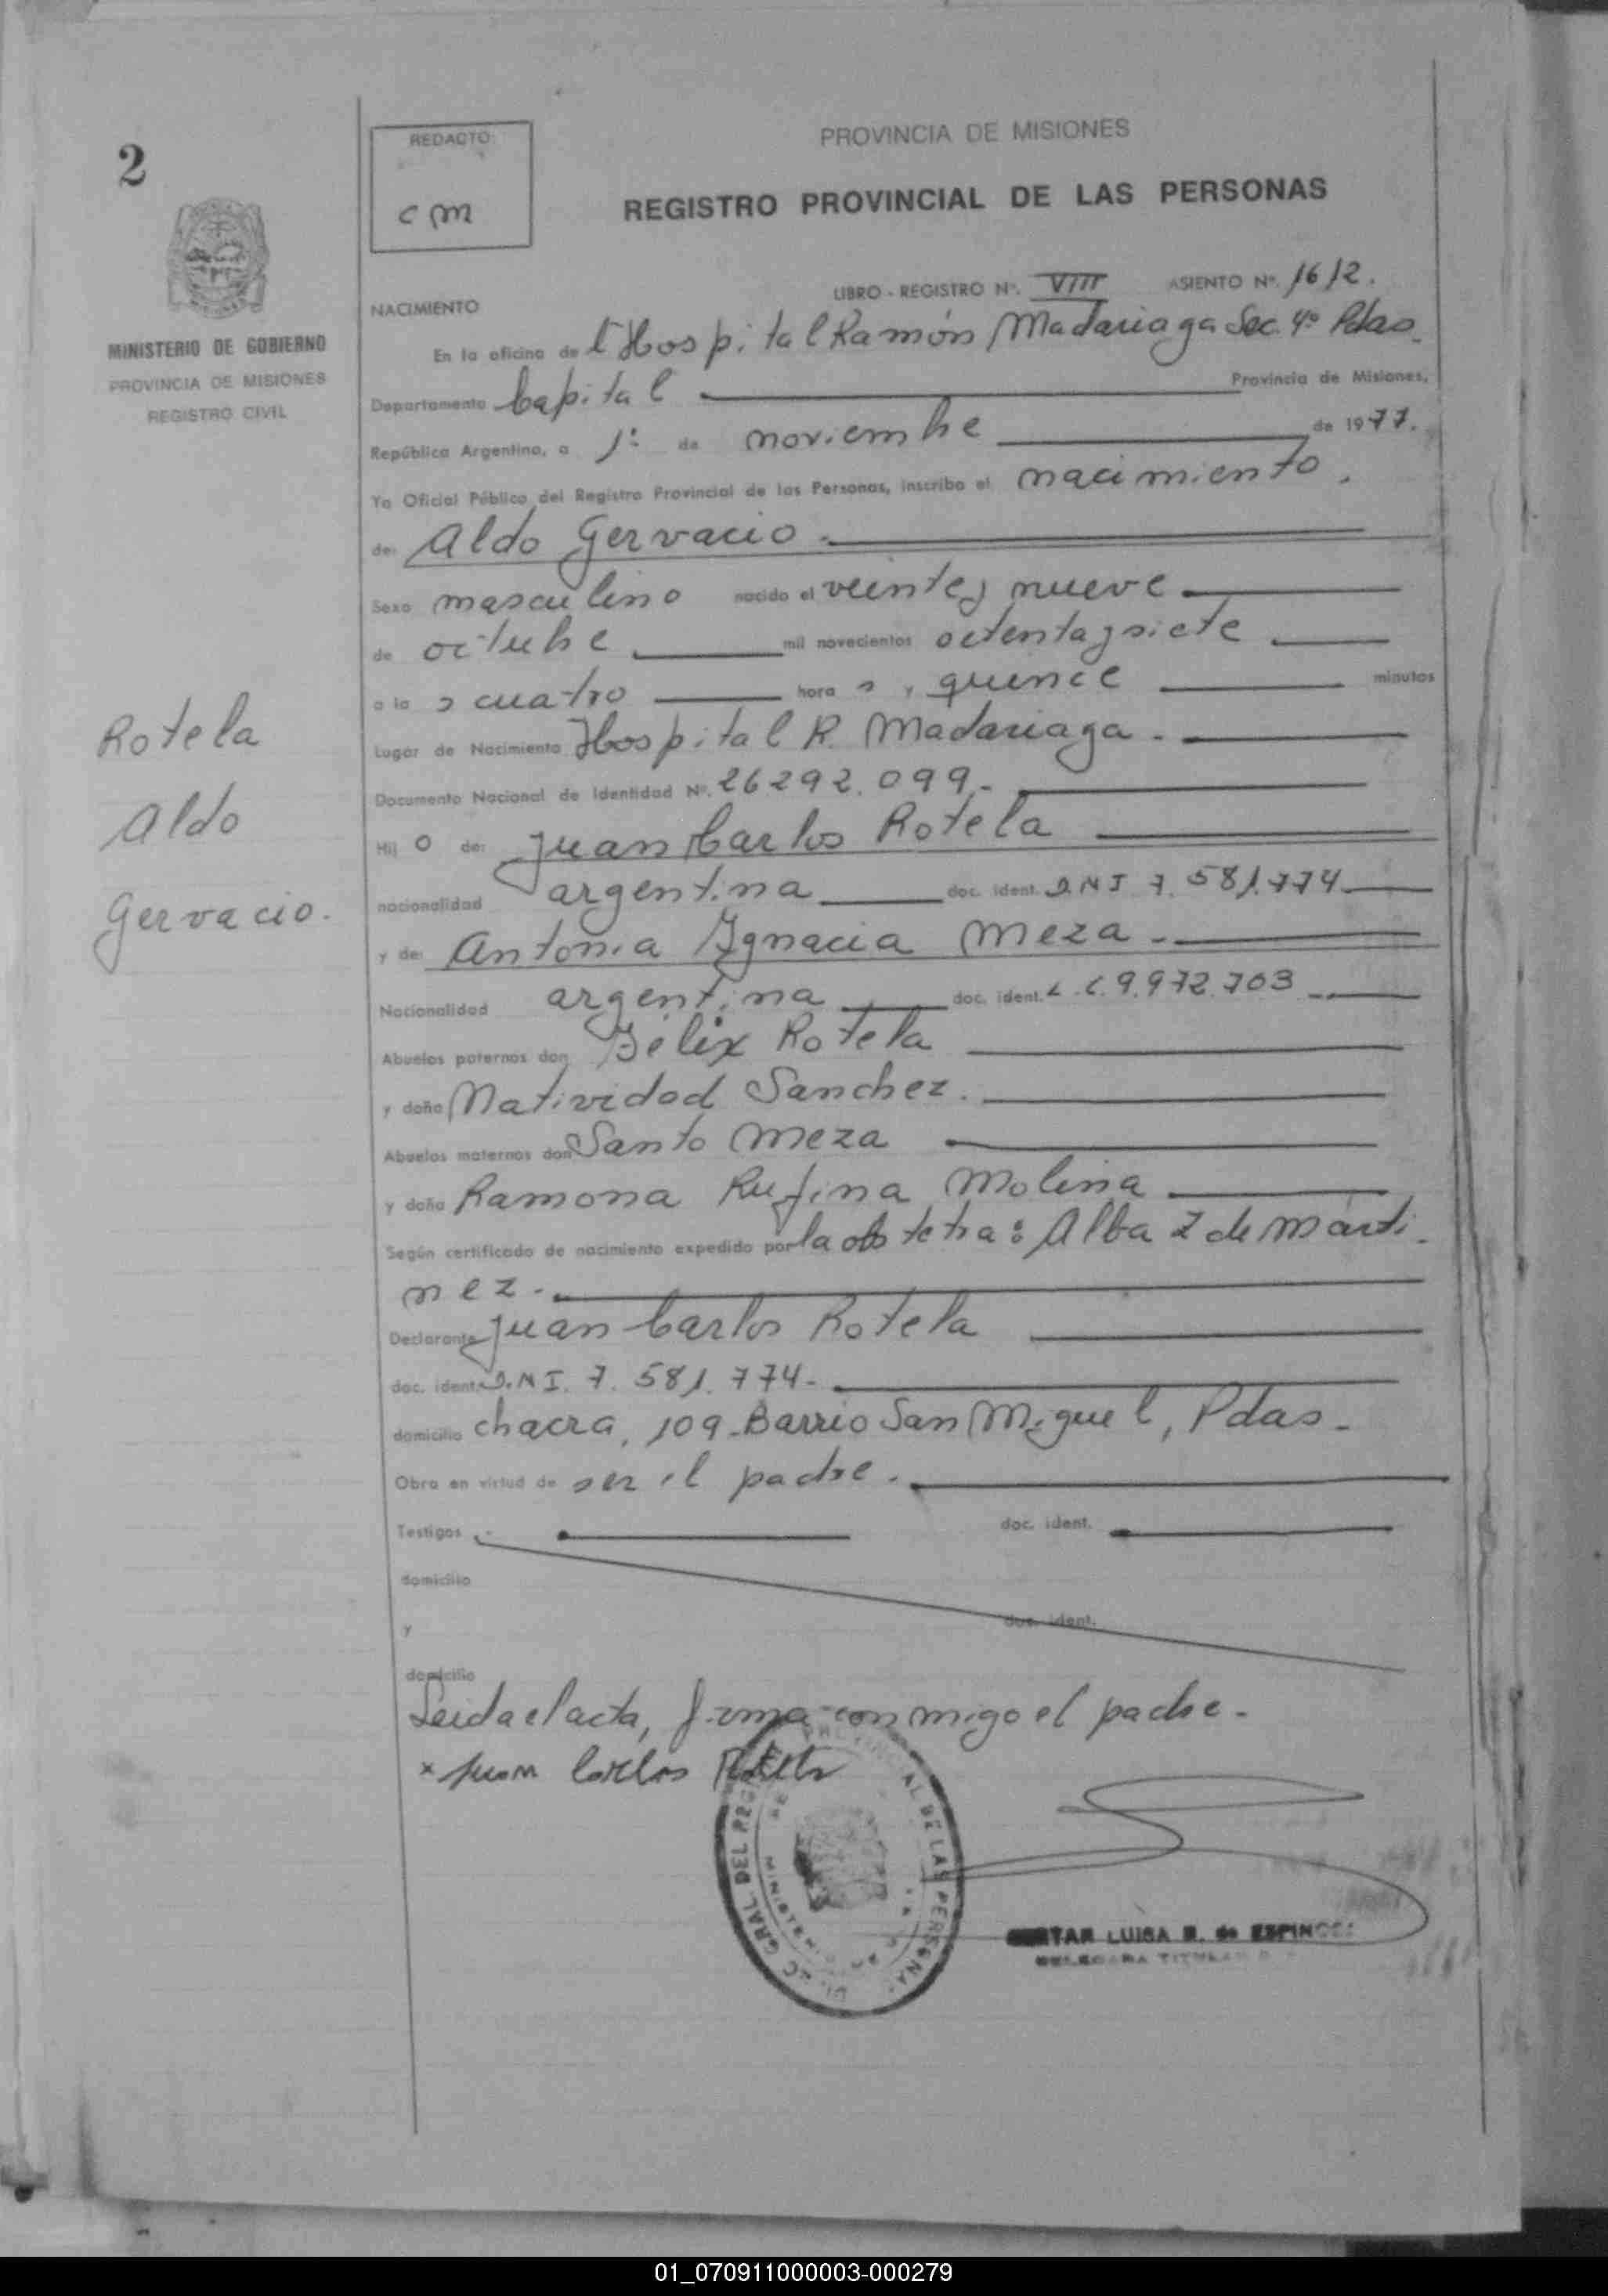 2
MINISTERIO DE GOBIERNO
PROVINCIA DE MISIONES
REGISTRO CIVIL
Rotela
Aldo
Gervacio.
REDACTO:
cm
PROVINCIA DE MISIONES
REGISTRO PROVINCIAL DE LAS PERSONAS
LIBRO - REGISTRO Nº. VIII ASIENTO Nº. 1612.
NACIMIENTO
En la oficina del Hospital Ramón Madariaga Sec. 4º Pdas.
Departamento Capital Provincia de Misiones,
República Argentina, a 1º de noviembre de 1977.
Yo Oficial Público del Registro Provincial de las Personas, inscribo el nacimiento.
de: Aldo Gervacio.
Sexo masculino nacido el veinte y nueve
de octubre mil novecientos octenta y siete
a la s cuatro hora s y quince minutos
Lugar de Nacimiento Hospital R. Madariaga.
Documento Nacional de Identidad Nº. 26292.099.-
Hij o de: Juan Carlos Rotela
nacionalidad argentina doc. ident. D.N I 7.581.774
y de: Antonia Ygnacia Meza.
Nacionalidad argentina doc. ident. L.C.9.972.703
Abuelos paternos don Félix Rotela
y doña Natividad Sanchez.
Abuelos maternos don Santo Meza
y doña Ramona Rufina Molina
Según certificado de nacimiento expedido por la obstetra: Alba Z de Marti-
nez.
Declarante Juan Carlos Rotela
doc. ident. D.N I. 7.581.774-
domicilio chacra, 109-Barrio San Miguel, Pdas.
Obra en virtud de ser el padre.
Testigos doc. ident.
domicilio
y doc. ident.
domicilio
Leida el acta, firma conmigo el padre.
x Juan Carlos Rotela
GRAL. DEL REG PROVINCIAL DE LAS PERSONAS
LUISA R. de ESPINOSA
DELEGADA TITULAR
01_070911000003-000279